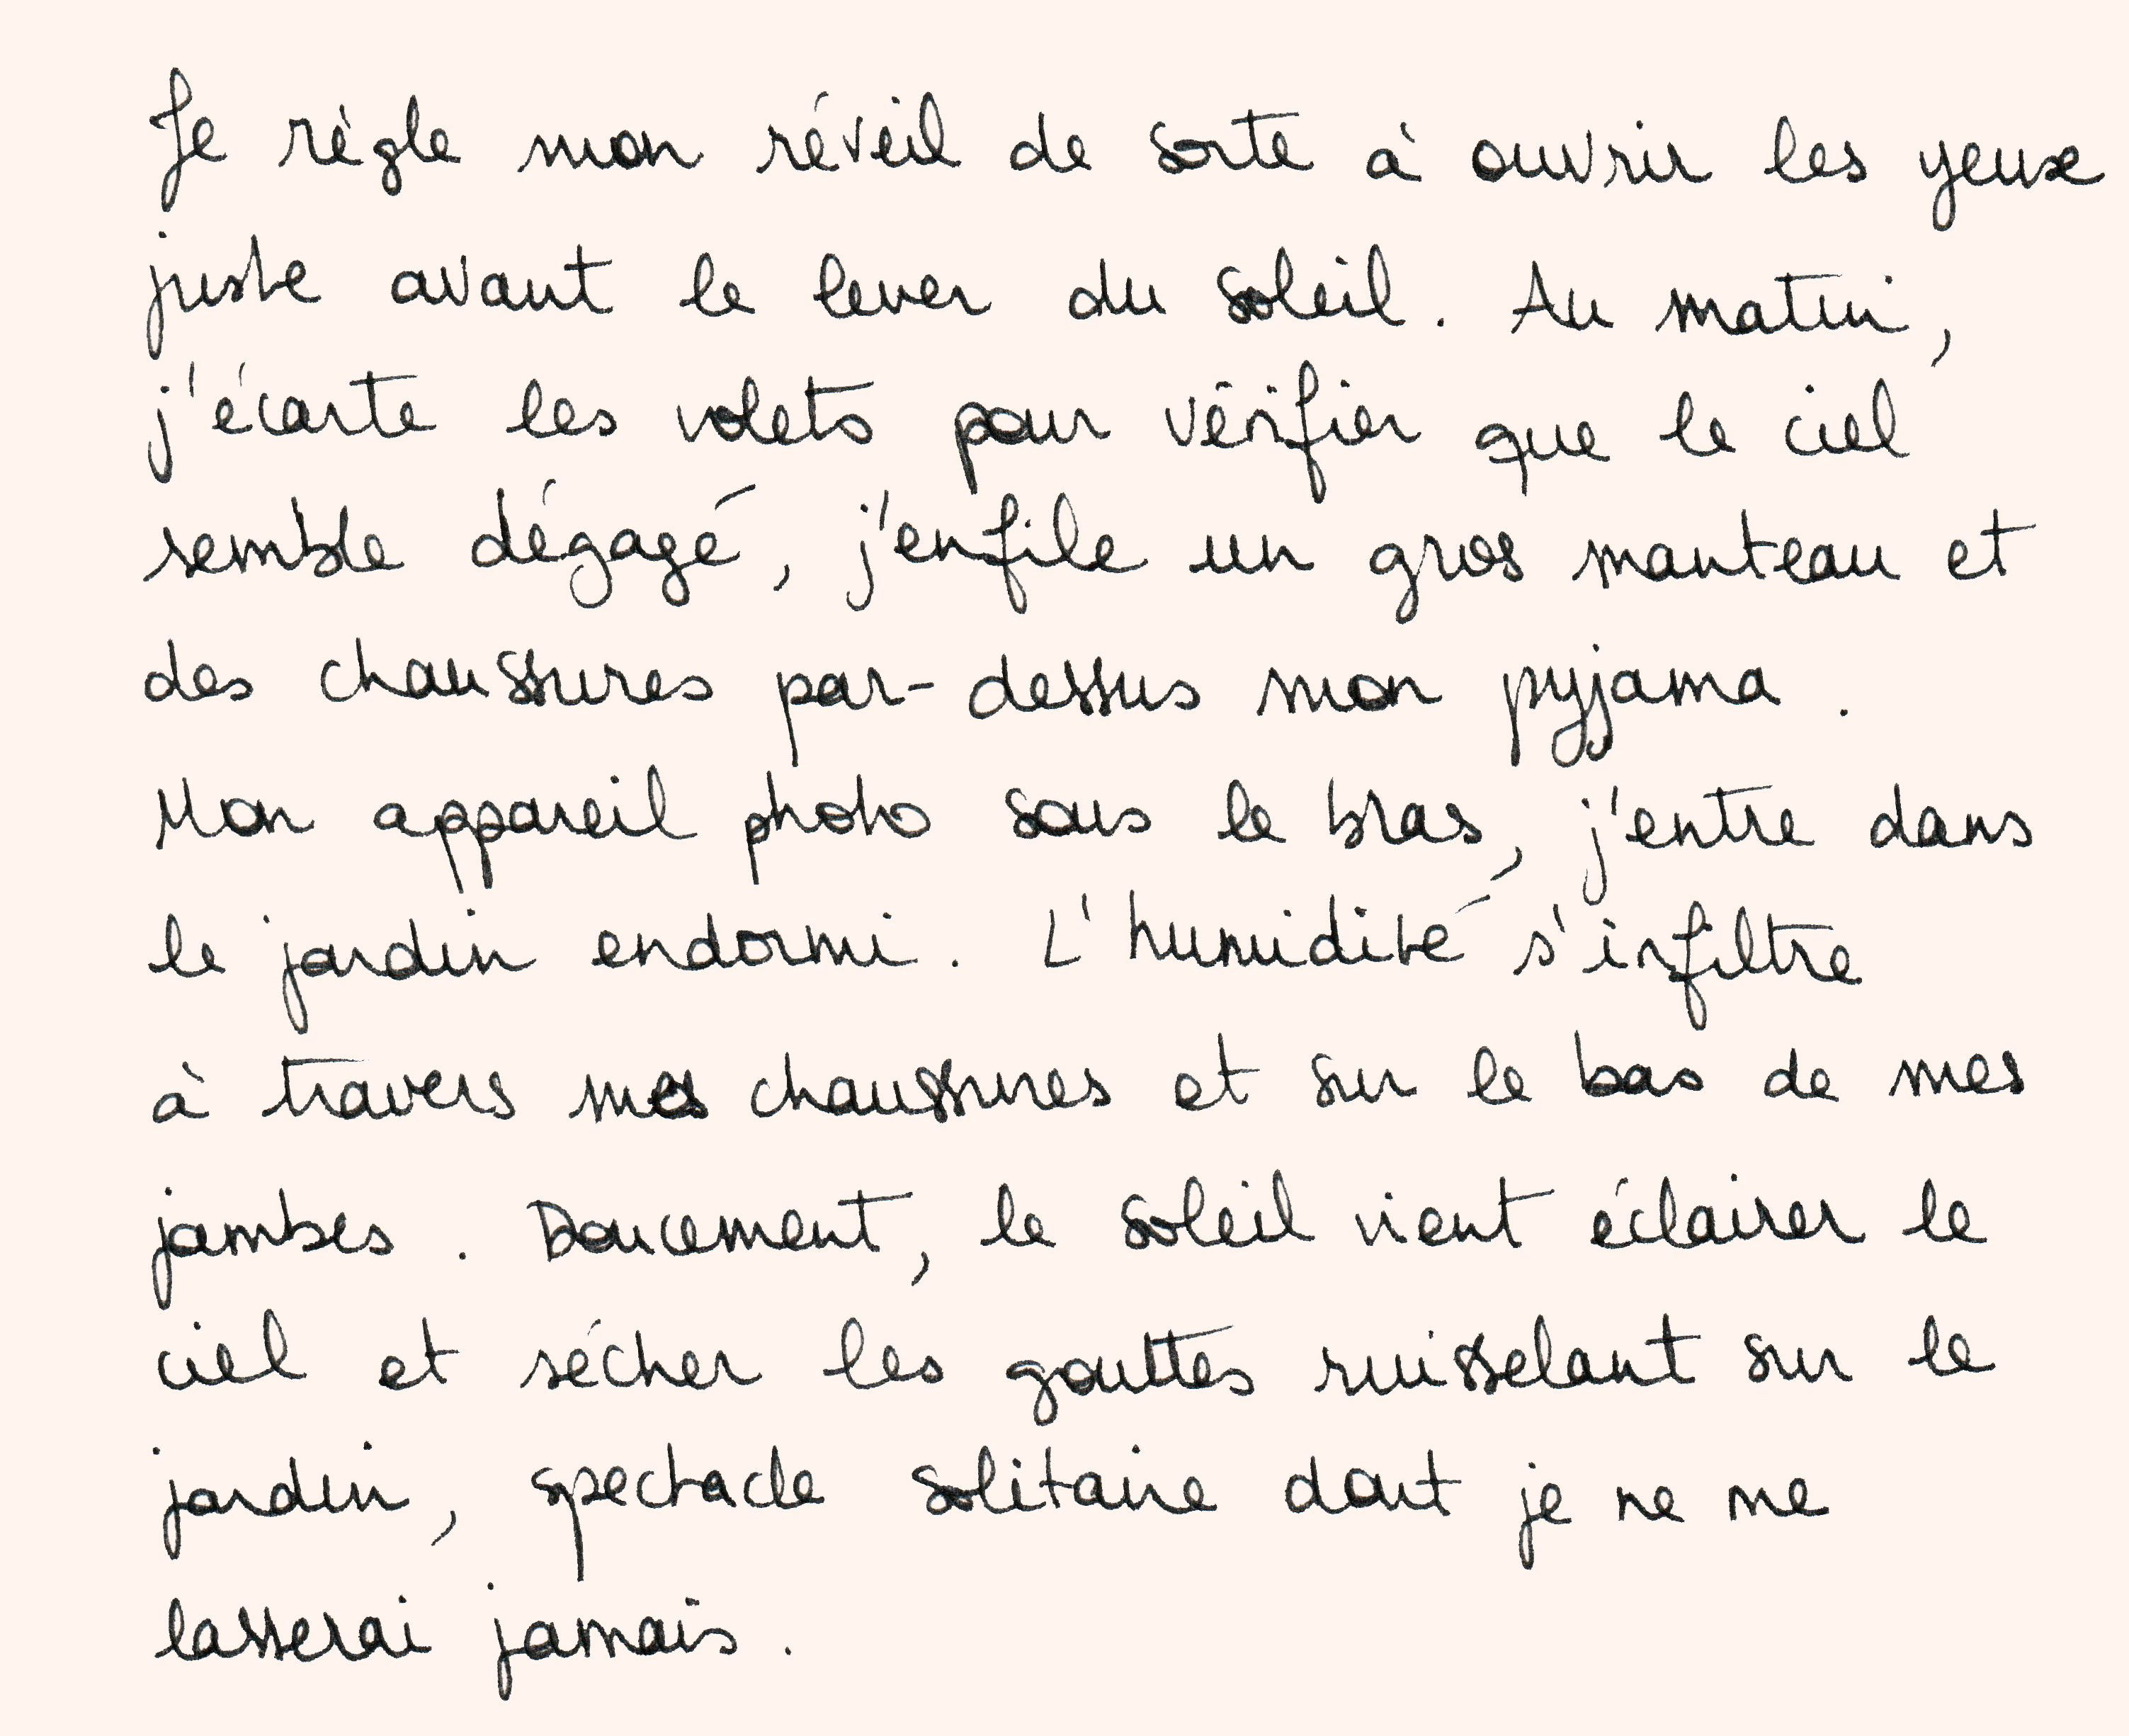 Je règle mon réveil de sorte à ouvrir les yeux
juste avant le lever du soleil. Au matin,
j'écarte les volets pour vérifier que le ciel
semble dégagé, j'enfile un gros manteau et
des chaussures par-dessus mon pyjama.
Mon appareil photo sous le bras, j'entre dans
le jardin endormi. L'humidité s'infiltre
à travers mes chaussures et sur le bas de mes
jambes. Doucement, le soleil vient éclairer le
ciel et sécher les gouttes ruisselant sur le
jardin, spectacle solitaire dont je ne me
lasserai jamais.